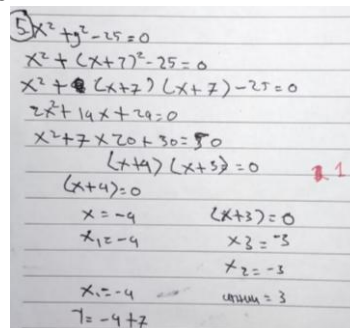 5) x² + y² - 25 = 0
x² + (x+7)² - 25 = 0
x² + (x+7)(x+7) - 25 = 0
2x² + 14x + 24 = 0
(x+4)(x+3) = 0
1
(x+4) = 0
x = -4 (x+3) = 0
x₁ = -4 x3 = -3
x₂ = -3
x₁ = -4 = 3
y = -4+7